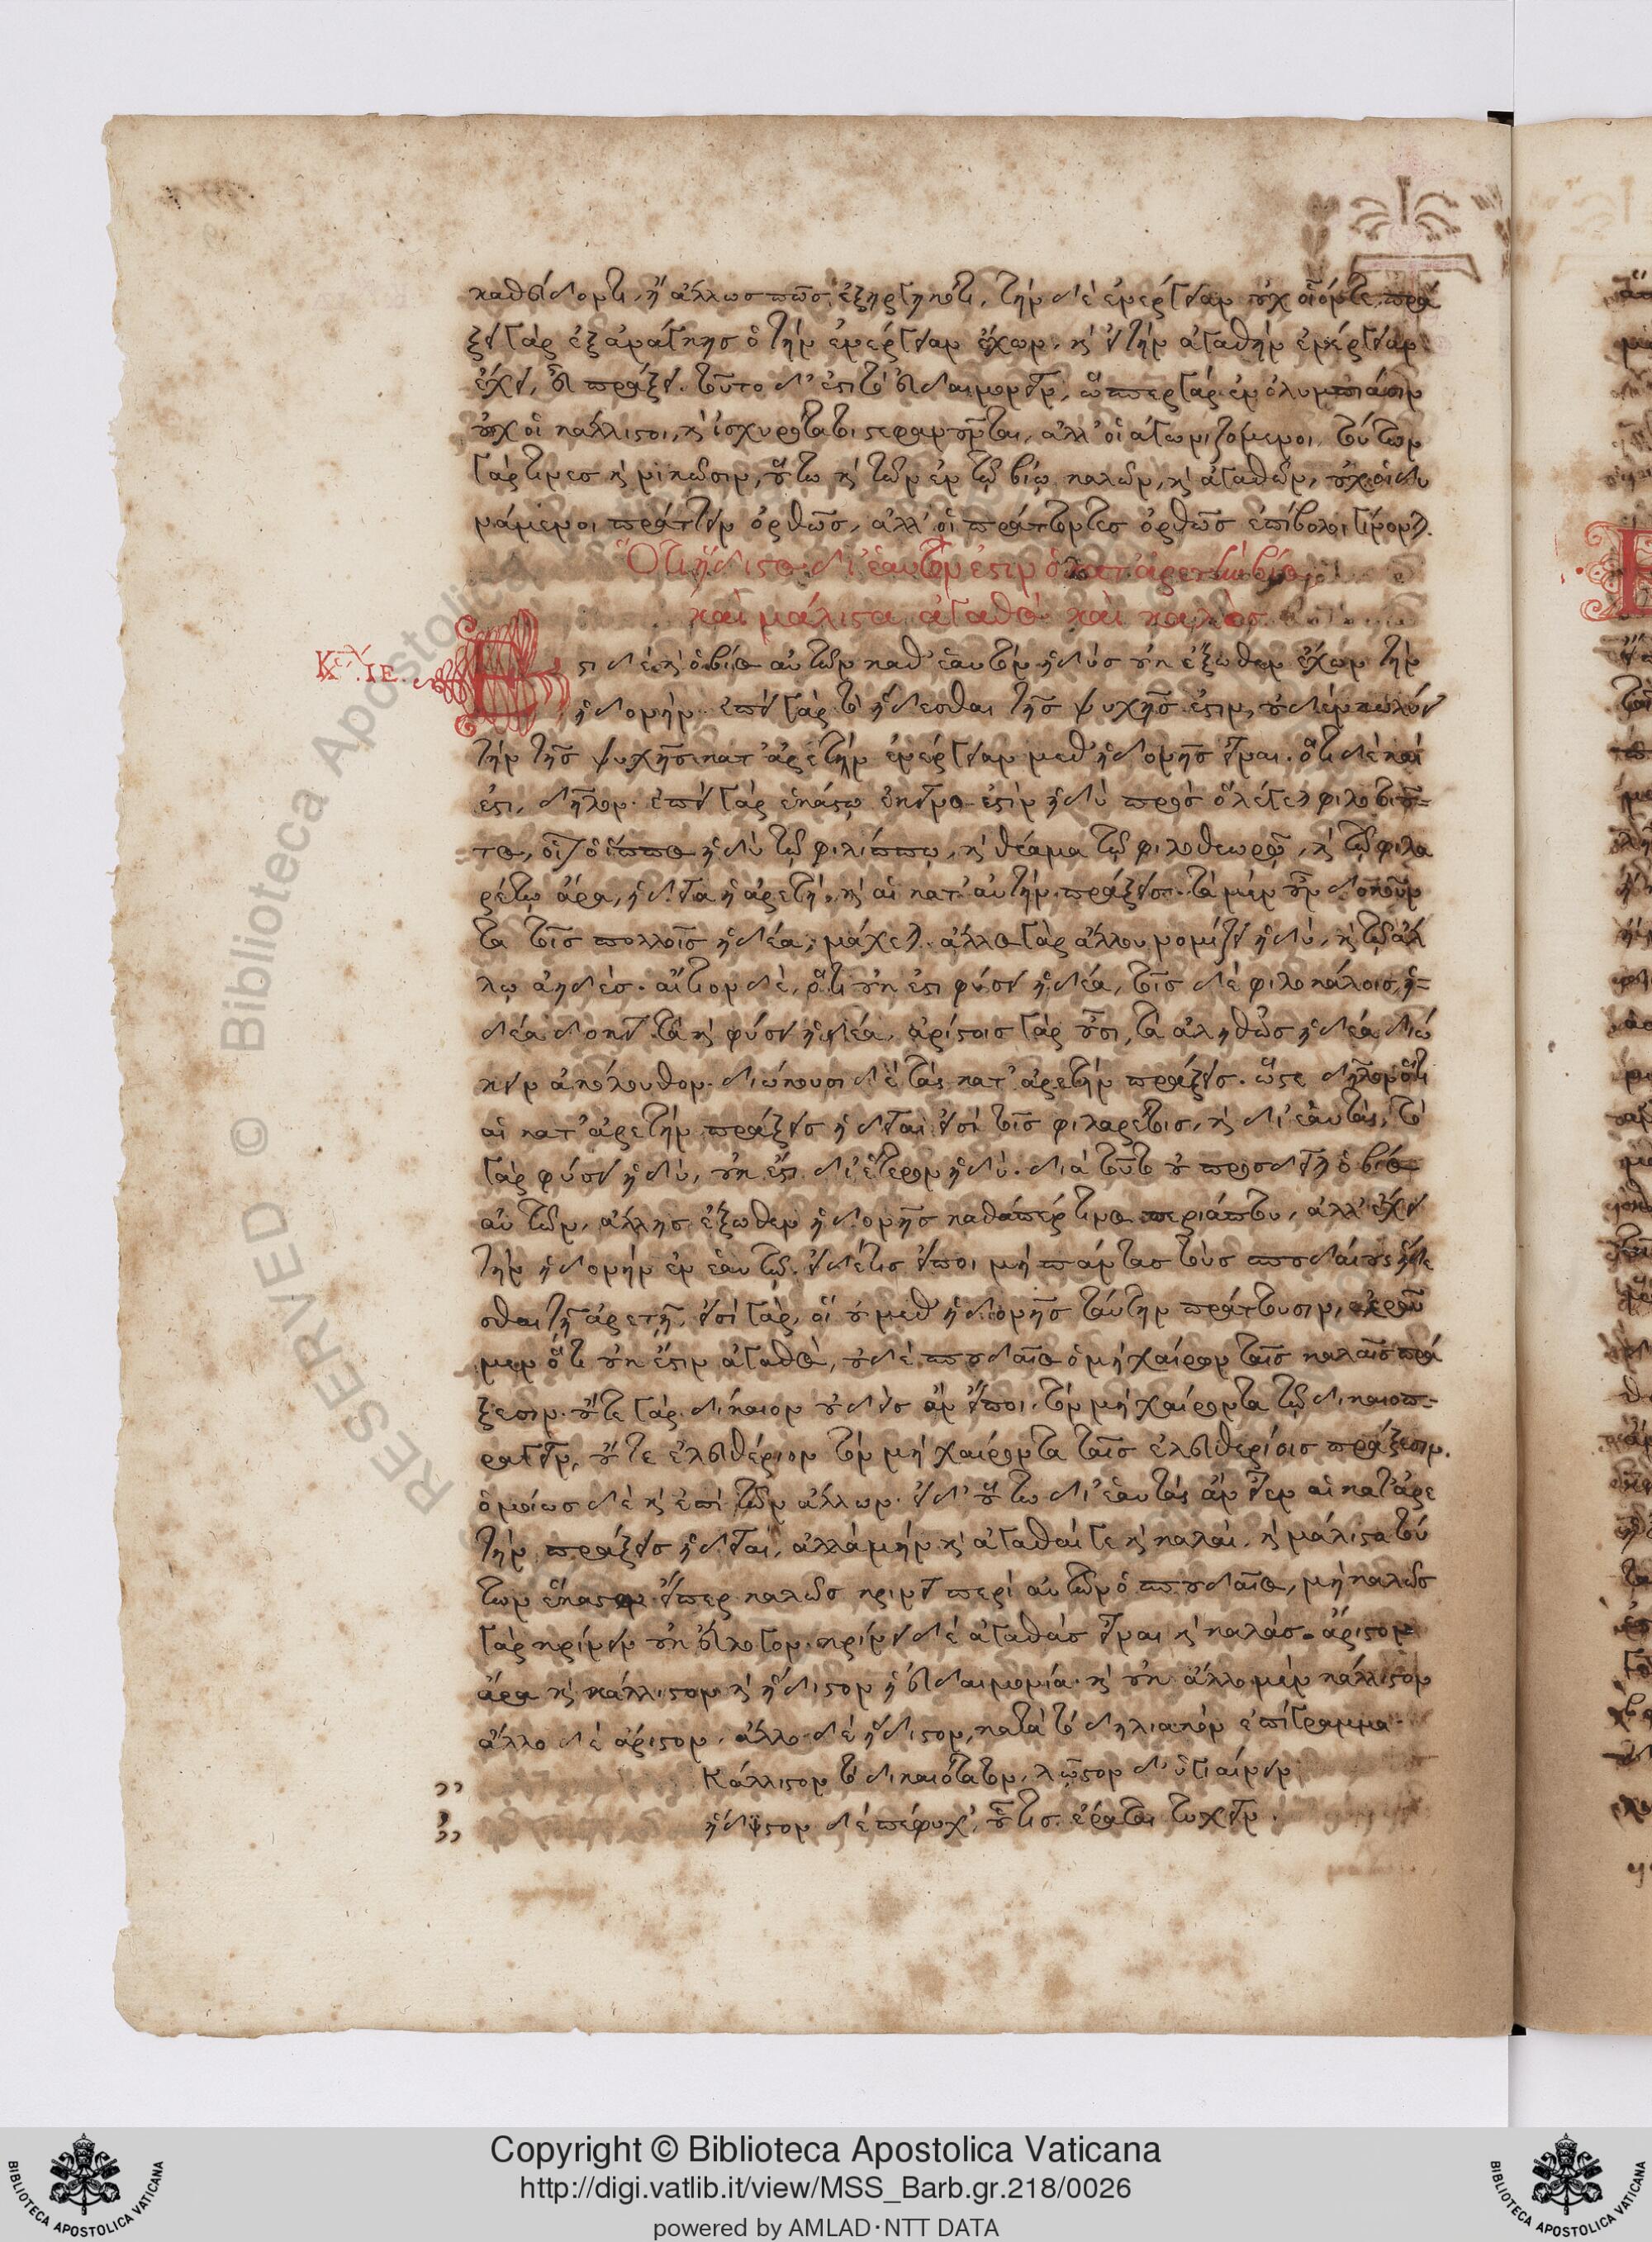 καθεύδοντι, ἢ ἄλλως πῶς ἐξηργηκότι, τὴν δὲ ἐνέργειαν οὐχ οἷόν τε, πρά
ξει γὰρ ἐξ ἀνάγκης ὁ τὴν ἐνέργειαν ἔχων. καὶ εἰ τὴν ἀγαθὴν ἐνέργειαν
ἔχει, εὖ πράξει. τοῦτο δ' ἐστὶ τὸ εὐδαιμονεῖν, ὥσπερ γὰρ ἐν ὀλυμπιάσιν
οὐχ οἱ κάλλιστοι, καὶ ἰσχυρότατοι στεφανοῦνται, ἀλλ' οἱ ἀγωνιζόμενοι, τούτων
γάρ τινες καὶ νικῶσιν, οὕτω καὶ τῶν ἐν τῷ βίῳ καλῶν, καὶ ἀγαθῶν, οὐχ οἱ δυ
νάμενοι πράττειν ὀρθῶς, ἀλλ' οἱ πράττοντες ὀρθῶς ἐπίβολοι γίνονται.
Ὅτι ἥδιστος δι' ἑαυτόν ἐστιν ὁ κατ' ἀρετὴν βίος,
καὶ μάλιστα ἀγαθὸς καὶ καλὸς.
Κεφ. ΙΕ. Ἔστι δὲ καὶ ὁ βίος αὐτῶν καθ' ἑαυτὸν ἡδὺς οὐκ ἔξωθεν ἔχων τὴν
ἡδονήν. ἐπεὶ γὰρ τὸ ἥδεσθαι τῆς ψυχῆς ἐστιν, οὐδὲν κωλύει
τὴν τῆς ψυχῆς κατ' ἀρετὴν ἐνέργειαν μεθ' ἡδονῆς εἶναι. ὅτι δὲ καὶ
ἐστι, δῆλον. ἐπεὶ γὰρ ἑκάστῳ ἐκεῖνο ἐστὶν ἡδὺ πρὸς ὃ λέγεται φιλοτοιοῦ
τος, οἷον ὁ ἵππος ἡδὺ τῷ φιλίππῳ, καὶ θέαμα τῷ φιλοθεωρῷ, καὶ τῷ φιλα
ρέτῳ ἄρα, ἡδεῖα ἡ ἀρετή, καὶ αἱ κατ' αὐτὴν πράξεις. τὰ μὲν οὖν δοκοῦν
τα τοῖς πολλοῖς ἡδέα, μάχεται. ἄλλος γὰρ ἄλλου νομίζει ἡδύ, καὶ τῷ ἄλ
λῳ ἀηδές. αἴτιον δὲ, ὅτι οὐκ ἔστι φύσει ἡδέα, τοῖς δὲ φιλοκάλοις, ἡ
δέα δοκεῖ τὰ καὶ φύσει ἡδέα. ἀρίστοις γὰρ οὖσι, τὰ ἀληθῶς ἡδέα διώ
κειν ἀκόλουθον. διώκουσι δὲ τὰς κατ' ἀρετὴν πράξεις. ὥστε δῆλον ὅτι
αἱ κατ' ἀρετὴν πράξεις ἡδεῖαι εἰσὶ τοῖς φιλαρέτοις, καὶ δι' ἑαυτάς, τὸ
γὰρ φύσει ἡδύ, οὐκ ἔστι δι' ἕτερον ἡδύ. διὰ τοῦτο οὐ προσδεῖται ὁ βίος
αὐτῶν, ἄλλης ἔξωθεν ἡδονῆς καθάπερ τινος περιάπτου, ἀλλ' ἔχει
τὴν ἡδονὴν ἐν ἑαυτῷ. εἰ δέ τις εἴποι μὴ πάντας τοὺς σπουδαίους ἥδε
σθαι τῇ ἀρετῇ, εἰσὶ γάρ, οἳ οὐ μεθ' ἡδονῆς ταύτην πράττουσιν, ἐροῦ
μεν ὅτι οὐκ ἔστιν ἀγαθὸς, οὐδὲ σπουδαῖος ὁ μὴ χαίρων ταῖς καλαῖς πρά
ξεσιν. οὔτε γὰρ δίκαιον οὐδεὶς ἂν εἴποι, τὸν μὴ χαίροντα τῷ δικαιοπ
ραγεῖν, οὔτε ἐλευθέριον τὸν μὴ χαίροντα ταῖς ἐλευθερίοις πράξεσιν.
ὁμοίως δὲ καὶ ἐπὶ τῶν ἄλλων. εἰ δ' οὕτω δι' ἑαυτὰς ἂν εἶεν αἱ κατ' ἀρε
τὴν πράξεις ἡδεῖαι, ἀλλὰ μὴν καὶ ἀγαθαί γε καὶ καλαί, καὶ μάλιστα τού
των ἕκαστον εἴπερ καλῶς κρινεῖ περὶ αὐτῶν ὁ σπουδαῖος, μὴ καλῶς
γὰρ κρίνειν οὐκ εὔλογον. κρίνει δὲ ἀγαθὰς εἶναι καὶ καλάς. ἄριστον
ἄρα καὶ κάλλιστον καὶ ἥδιστον ἡ εὐδαιμονία. καὶ οὐκ ἄλλο μὲν κάλλιστον
ἄλλο δὲ ἄριστον. ἄλλο δὲ ἥδιστον, κατὰ τὸ δηλιακὸν ἐπίγραμμα.
Κάλλιστον τὸ δικαιότατον, λῷστον δ' ὑγιαίνειν
ἥδιστον δὲ πέφυχ', οὗ τις ἐρᾶται τυχεῖν.
Copyright © Biblioteca Apostolica Vaticana
http://digi.vatlib.it/view/MSS_Barb.gr.218/0026
powered by AMLAD·NTT DATA
RESERVED © Biblioteca Apostolica
BIBLIOTECA APOSTOLICA VATICANA
BIBLIOTECA APOSTOLICA VATICANA